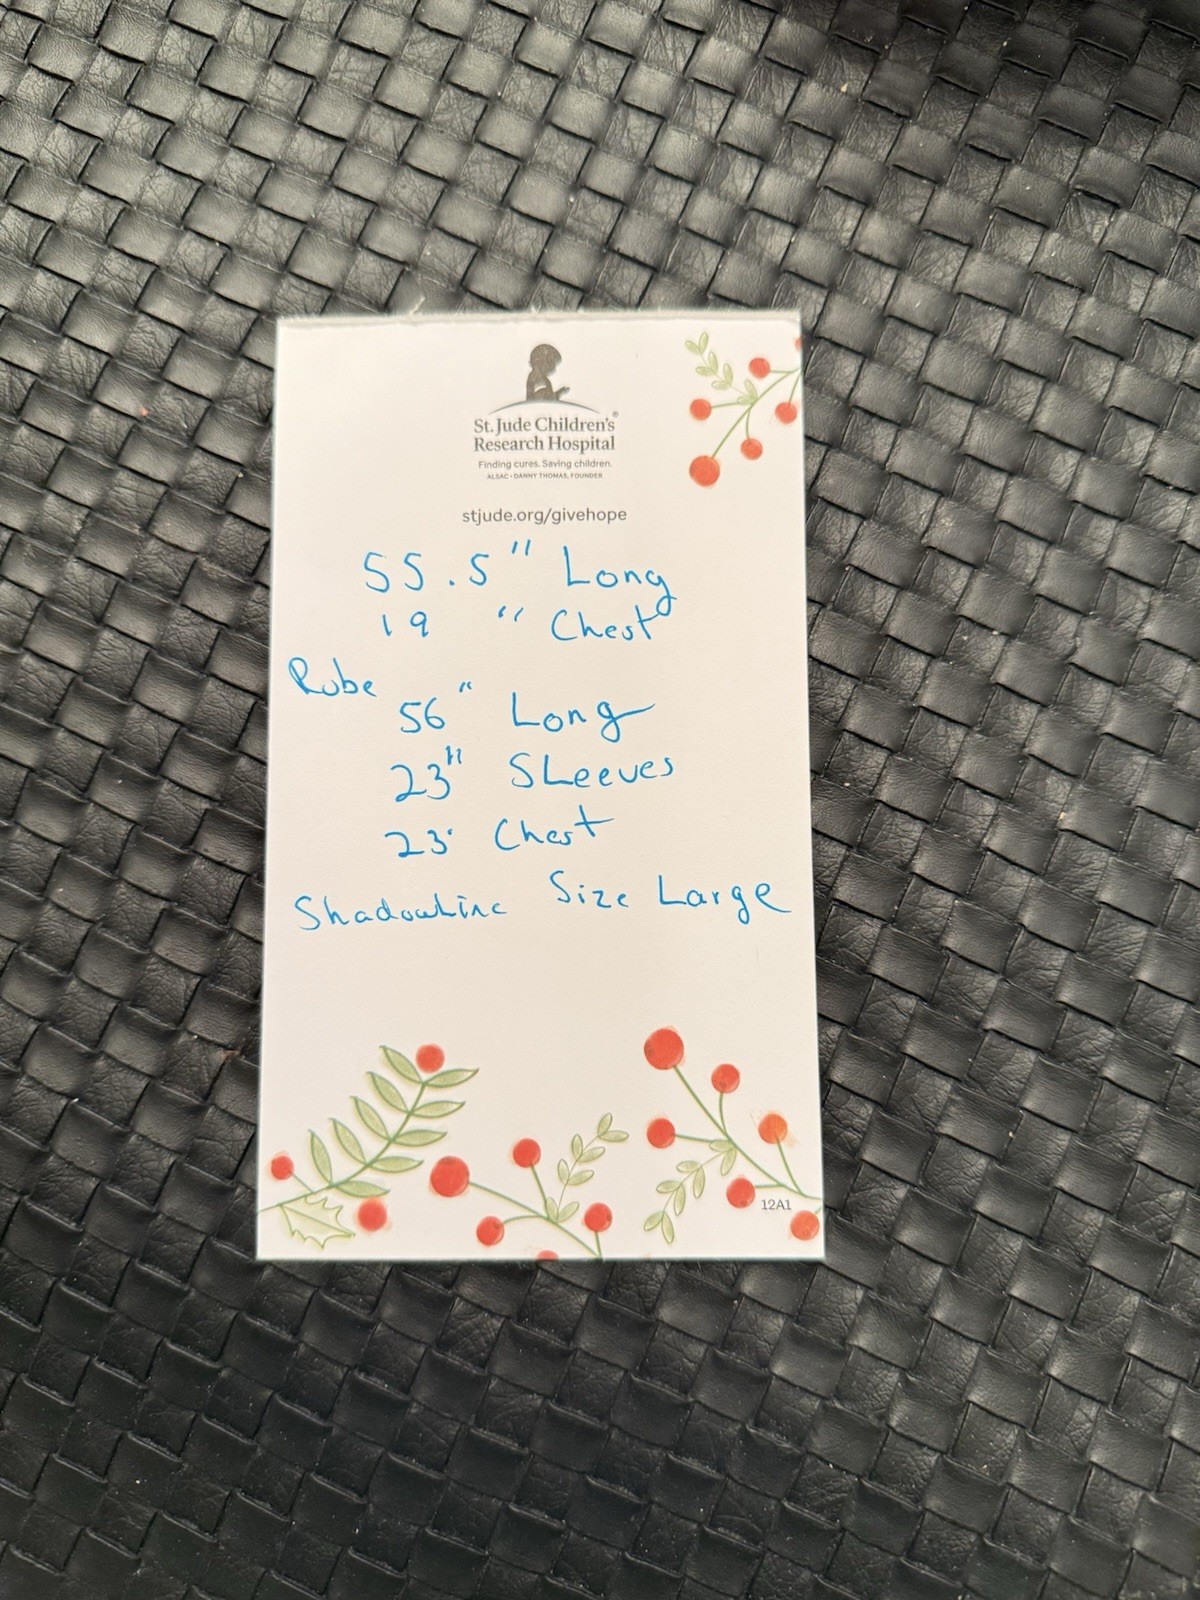 St. Jude Children's®
Research Hospital
Finding cures. Saving children.
ALSAC • DANNY THOMAS, FOUNDER
stjude.org/givehope
55.5" Long
19 " Chest
Robe
56" Long
23" SLeeves
23" Chest
Shadowline Size Large
12A1